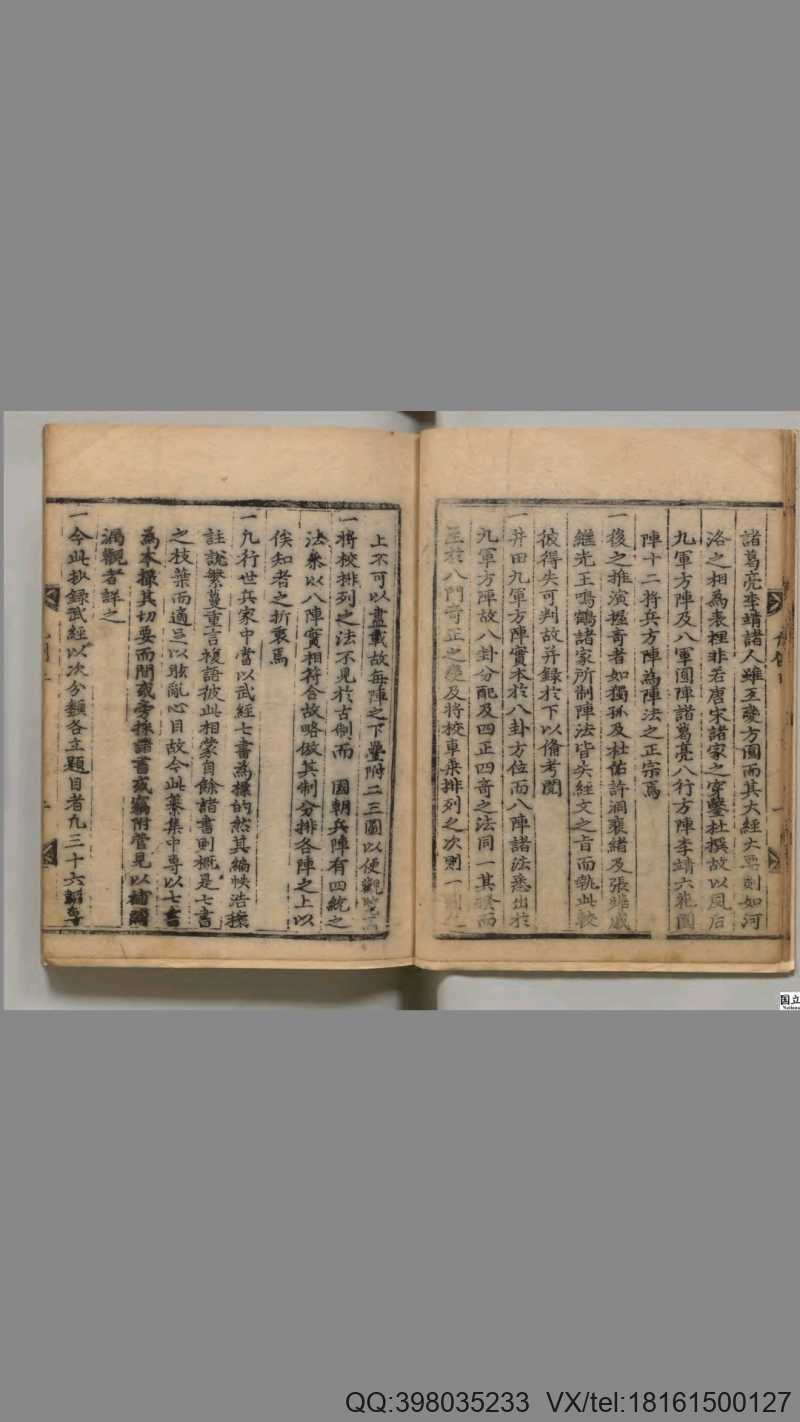 諸葛亮李靖諸人雖互變方圓而其大經大要則如河
洛之相為表裡非若唐宋諸家之穿鑿杜撰故以風后
九軍方陣及八軍圓陣諸葛亮八行方陣李靖六花圓
陣十二將兵方陣為陣法之正宗焉
一後之推演握奇者如獨孤及杜佑許洞裵緒及張燧戚
繼光王鳴鶴諸家所制陣法皆失經文之旨而執此較
彼得失可判故并録於下以備考閱
一井田九軍方陣實本於八卦方位而八陣諸法悉出於
九軍方陣故八卦分配及四正四奇之法同一其
至於八門奇正之變及將校車乘排列之次則一
上不可以盡載故每陣之下疊附二三圖以便觀覽
一將校排列之法不見於古制而 國朝兵陣有四統之
法乗以八陣實相符合故略倣其制分排各陣之上以
俟知者之折衷焉
一九行世兵家中當以武經七書為標的然其編帙浩穰
註說繁蔓重言複語彼此相蒙自餘諸書則概是七書
之枝葉而適足以眩亂心目故今此纂集中專以七書
為本撮其切要而間或旁採諸書或竊附管見以補闕
漏觀者詳之
一今此抄録武經以次分類各立題目者九三十六
国立
QQ:398035233 VX/tel:18161500127